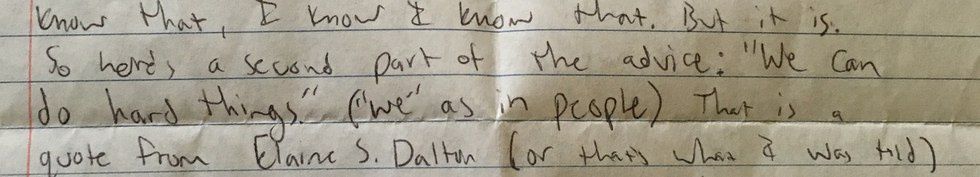 know that, I know I know that. But it is.
So here's a second part of the advice: "We can
do hard things." ("we" as in people) That is a
quote from Elaine S. Dalton (or that's what I was told)